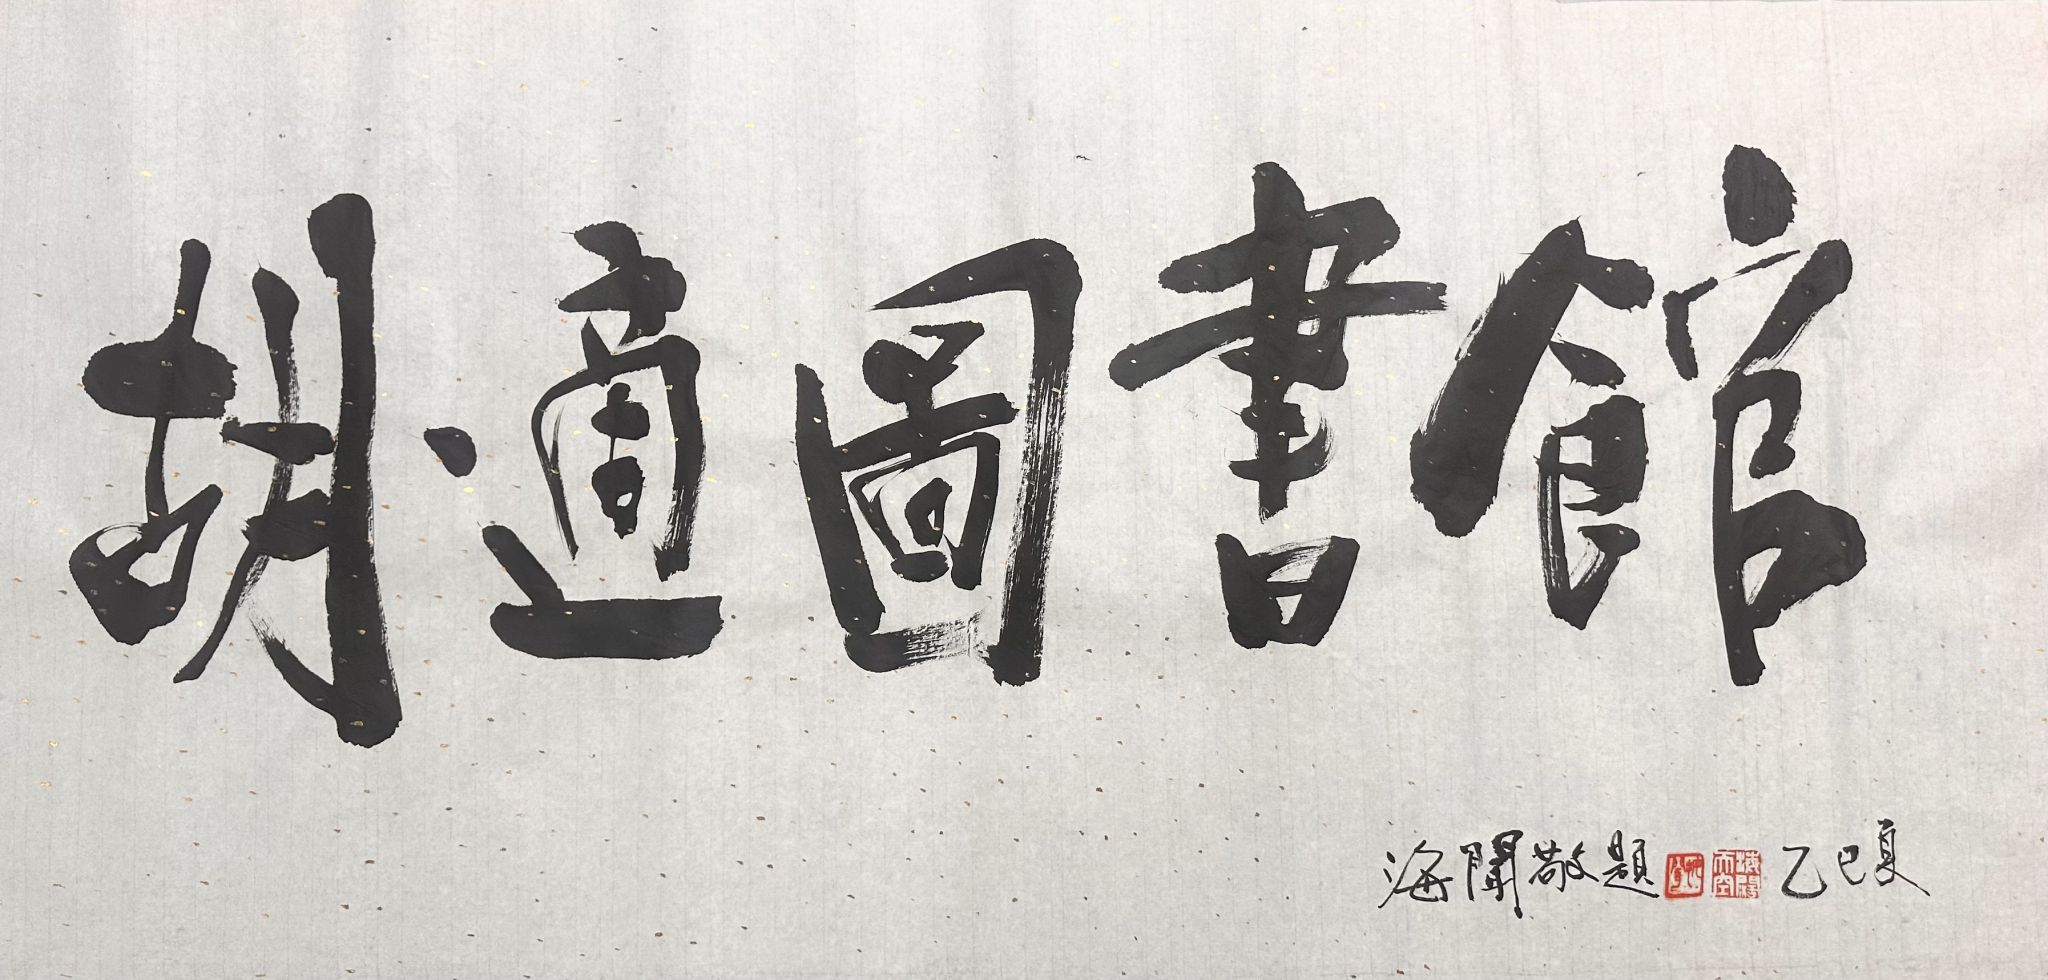 胡適圖書館
海聞敬題 乙巳夏